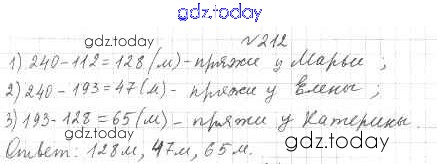 gdz.today
№212
gdz.today
1) 240-112=128(м)-пряжи у Марьи;
2) 240-193=47(м)-пряжи у Елены;
3) 193-128=65(м)-пряжи у Катерины.
gdz.today
gdz.today
Ответ: 128м, 47м, 65м.